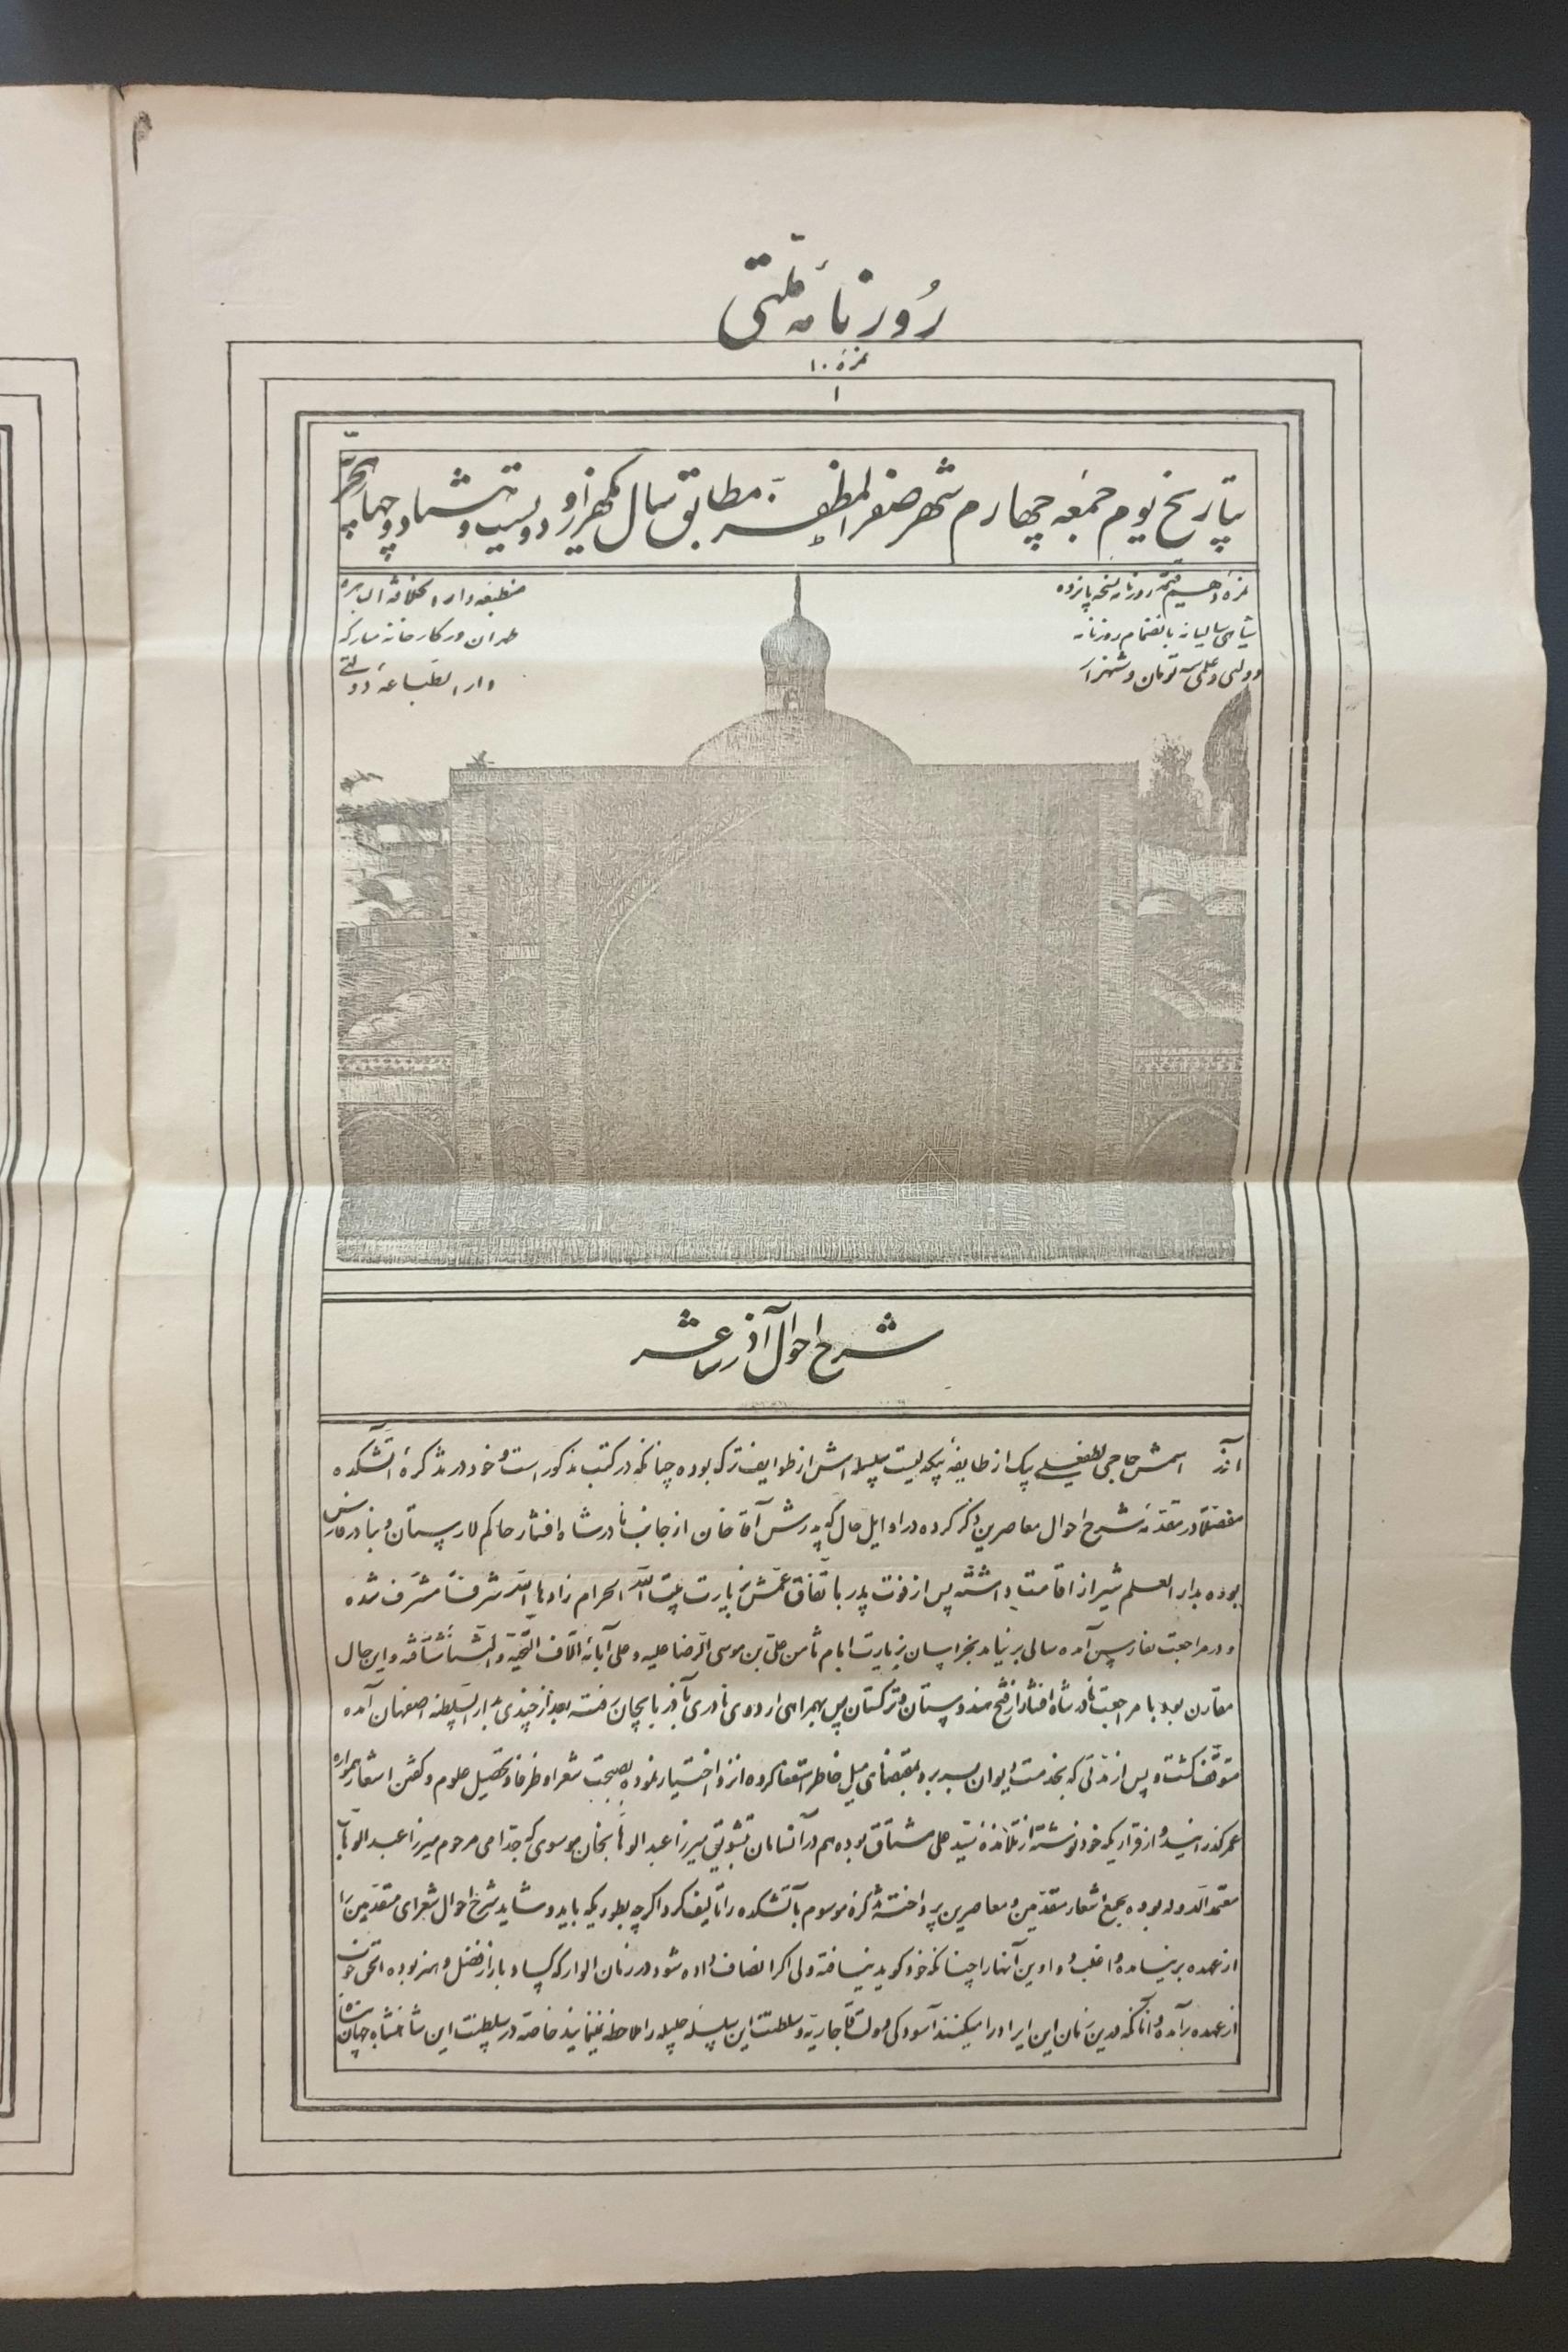 روزنامه ملتی
نمره ۱۰
۱
بتاریخ یوم جمعه چهارم شهر صفر المظفر مطابق سال یکهزار و دویست و هشتاد و چهار
نمره دهم قیمت روزنامه نسخه پانزده
شاهی سالیانه بانضمام روزنامه
دولتی و علمی سه تومان و ششهزار
منطبعه دار الخلافه الباهره
طهران در کارخانه مبارکه
دار الطباعه دولتی
شرح احوال آذر شاعر
آذر اسمش حاجی لطفعلی بیک از طایفه بیکدلیست سلسله اش از طوایف ترک بوده چنانکه در کتب مذکور است و خود در تذکره آتشکده
مفصلا در مقدمه شرح احوال معاصرین ذکر کرده در اوایل حال که پدرش آقاخان از جانب نادرشاه افشار حاکم لارستان و بنادر فارس
بوده بدار العلم شیراز اقامت داشته پس از فوت پدر باتفاق عمش بزیارت بیت الله الحرام زادها الله شرفا مشرف شده
و در مراجعت بفارس آمده سالی بر نیامد بخراسان بزیارت امام ثامن علی بن موسی الرضا علیه و علی آبائه آلاف التحیة و الثنا شتافته و این حال
مقارن بود با مراجعت نادرشاه افشار از فتح هندوستان و ترکستان پس بهمراهی اردوی نادری بآذربایجان رفته بعد از چندی بدار السلطنه اصفهان آمده
متوقف گشت و پس از مدتی که بخدمت دیوان بسر برد بمقتضای میل خاطر استعفا کرده انزوا اختیار نموده بصحبت شعرا و ظرفا و تحصیل علوم و گفتن اشعار همواره
عمر گذرانید و از قراریکه خود نوشته از تلامذه سید علی مشتاق بوده هم در آن سامان بتشویق میرزا عبدالوهاب خان موسوی که جد امی مرحوم میرزا عبدالوهاب
معتمد الدوله بوده بجمع اشعار متقدمین و معاصرین پرداخته تذکره موسوم بآتشکده را تالیف کرد اگرچه بطوریکه باید و شاید شرح احوال شعرای متقدمین را
از عهده بر نیامده و اغلب دواوین آنها را چنانکه خود گوید نیافته ولی اگر انصاف داده شود در زمان الوار که کساد بازار فضل و هنر بوده الحق خوب
از عهده برآمده و آنانکه درین زمان این ایراد را میکنند آسودگی دولت قاجاریه و سلطنت این سلسله جلیله را ملاحظه نمینمایند خاصه در سلطنت این شاهنشاه جهان پناه